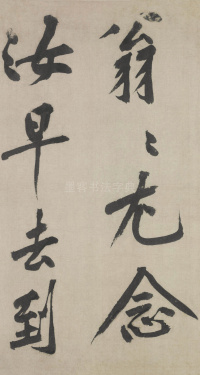 翁〻老念
汝早去到